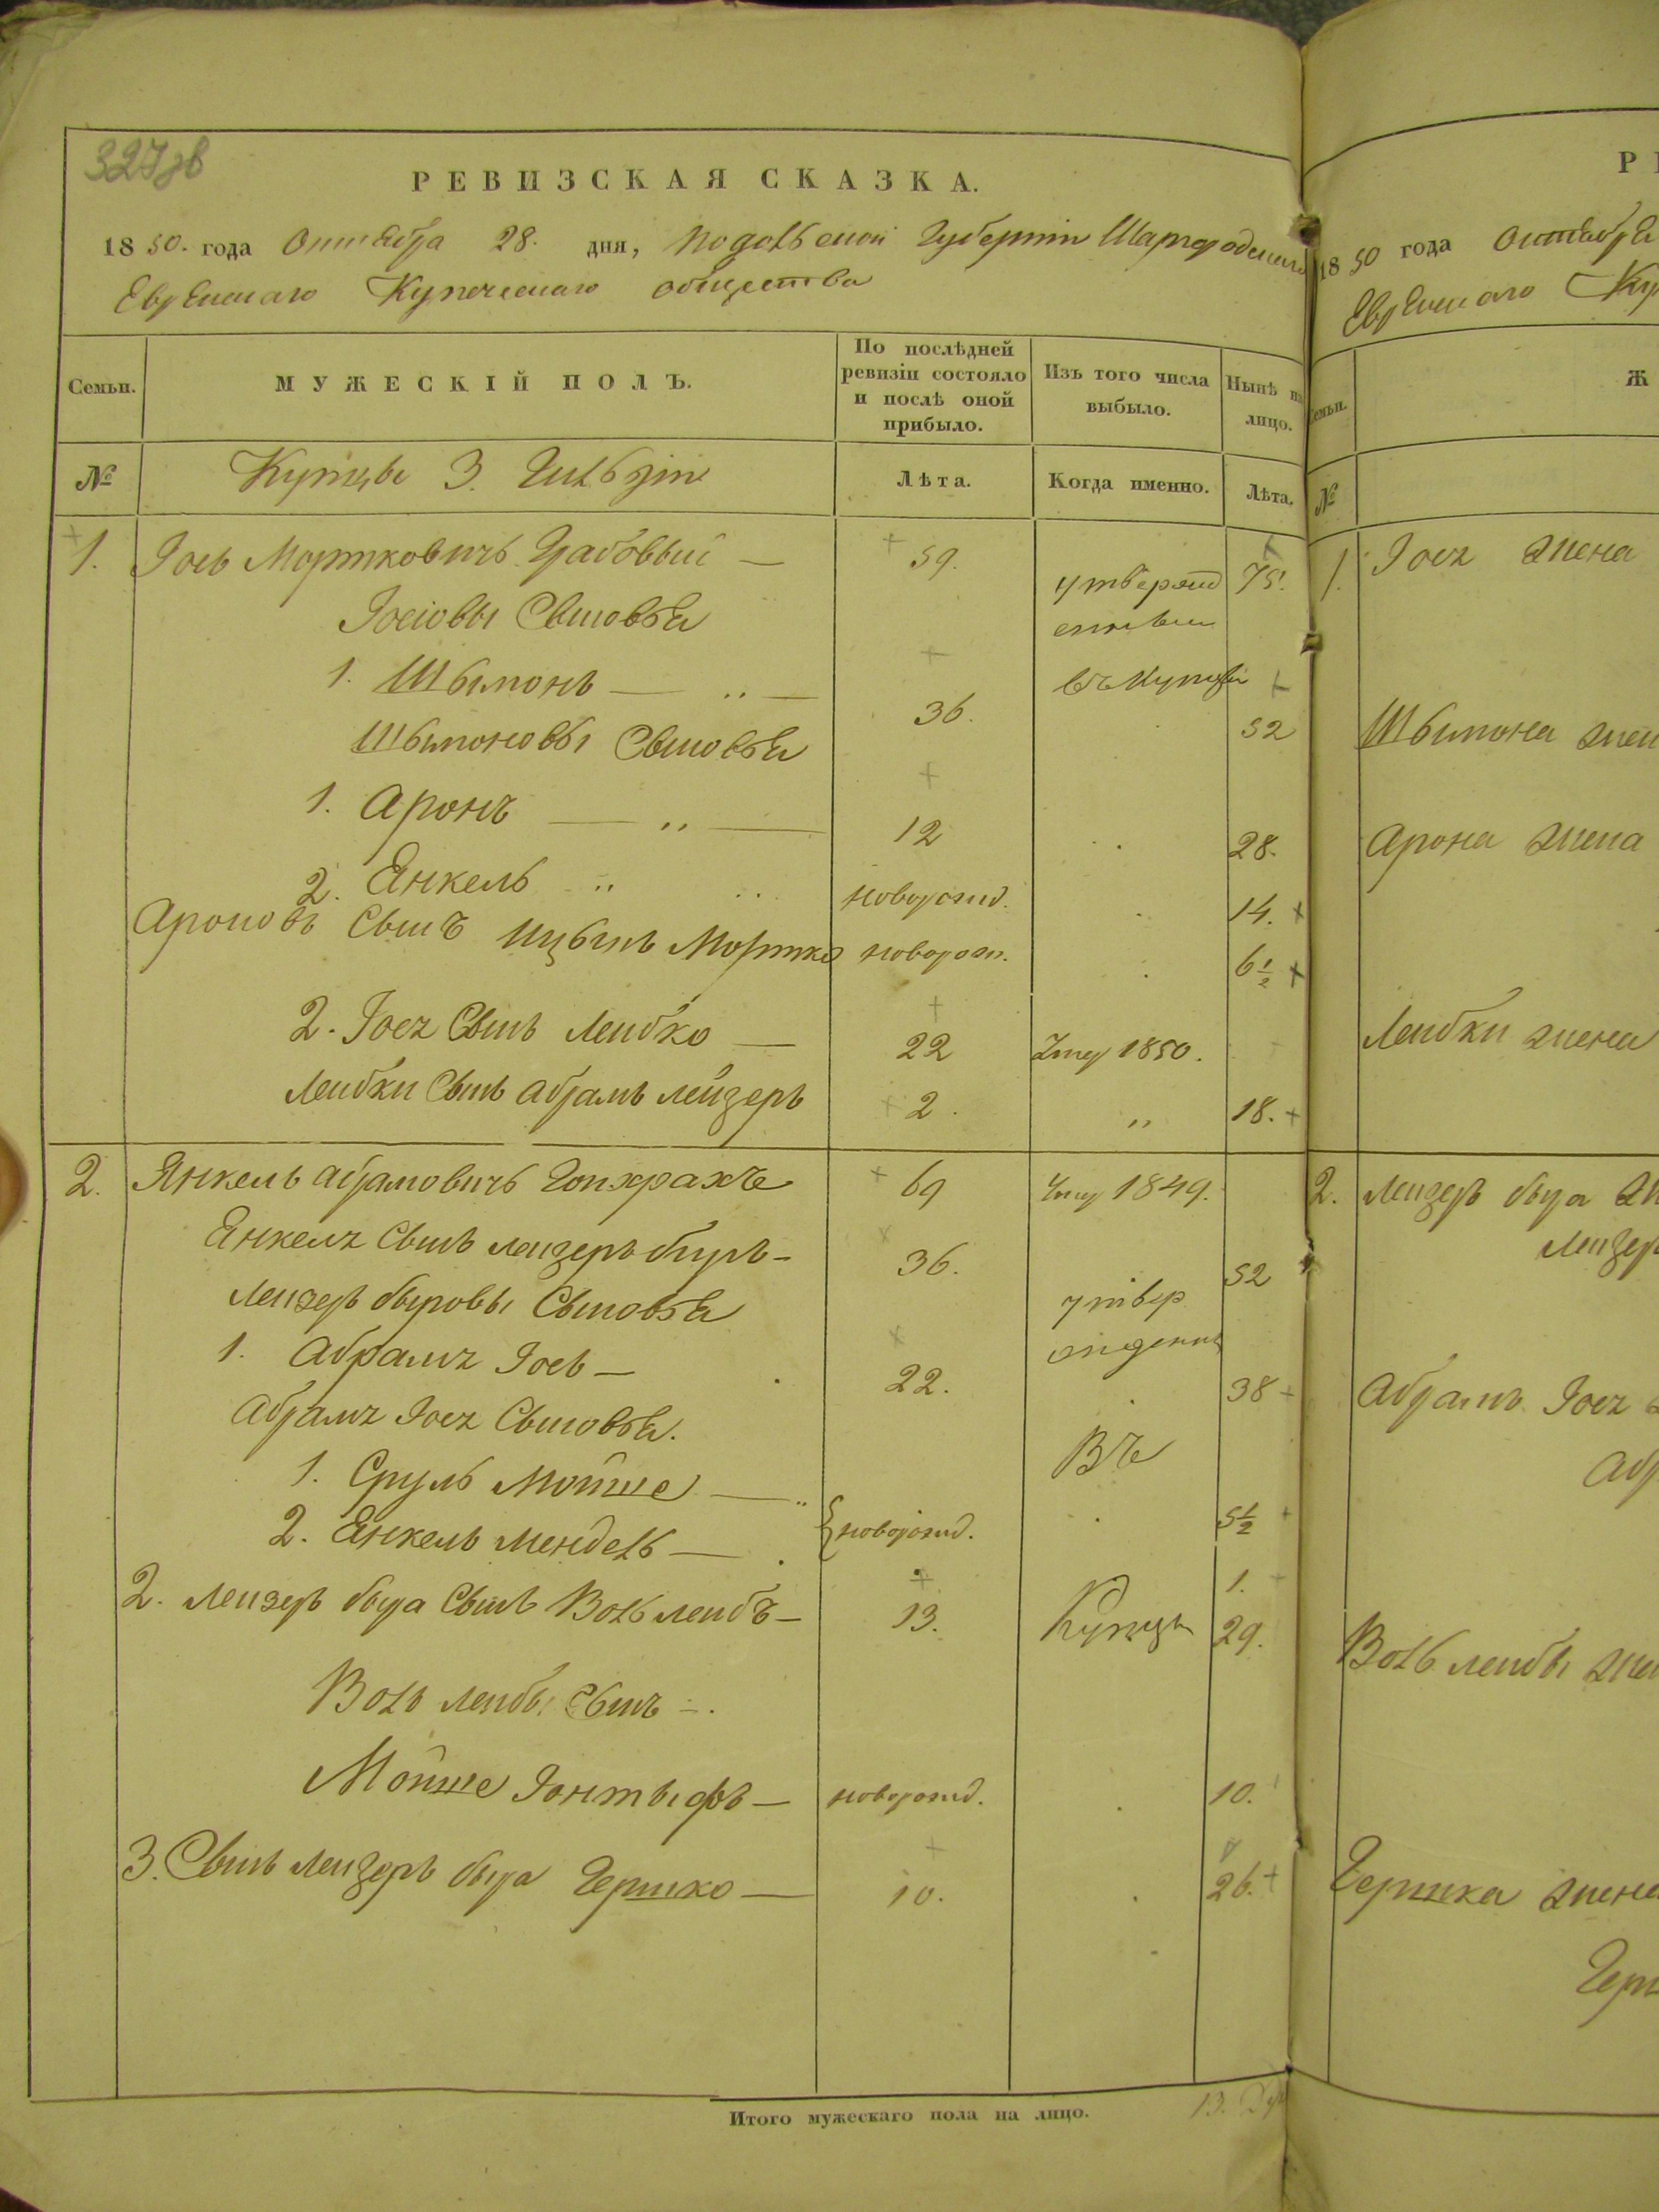 327об
РЕВИЗСКАЯ СКАЗКА.
1850. года Октября 28. дня, Подольской Губерніи Шаргородскаго
Еврейскаго Купеческаго общества
Семьи.
МУЖЕСКІЙ ПОЛЪ.
По послѣдней ревизіи состояло и послѣ оной прибыло.
Изъ того числа выбыло.
Нынѣ на лицо.
№
Купцы 3. Гильдіи
Лѣта.
Когда именно.
Лѣта.
1. Іось Мортковичъ Грабовый — 59. 75.
утвержд
Іосіовы Сыновья
енные
1. Шымонъ — „ — 36. въ Купцы 52
Шымоновы Сыновья
1. Аронъ — „ — 12 28.
2. Янкель „ новорожд. 14.
Ароновъ Сынъ Ицыкъ Мортко новорож. 6 1/2
2. Іося Сынъ Лейбко — 22 Умер 1850.
Лейбки Сынъ Абрамъ Лейзеръ 2. „ 18.
2. Янкель Абрамовичъ 69 Умер 1849.
Янкеля Сынъ Лейзеръ Беръ — 36. 52
Лейзеръ Беровы Сыновья утвер
1. Абрамъ Іось — 22. жденны 38
Абрама Іося Сыновья.
Въ
1. Сруль Мойше — „ 5 1/2
2. Янкель Мендель — новорожд. 1.
2. Лейзеръ Бера Сынъ Воль Лейбъ — 13. Купцы 29.
Воль Лейбы Сынъ —.
Мойше Іонтыфъ — новорожд. 10.
3. Сынъ Лейзеръ Бера Гершко — 10. 26.
Итого мужескаго пола на лицо.
13.
РЕ
1850 года Октября
Еврейскаго Куп
Семьи.
Ж
№
1. Іося жена
Шымона жен
Арона жена
Лейбки жена
2. Лейзеръ Бера
Лейзер
Абрамъ Іося
Абр
Воль Лейбы жен
Гершка жена
Герш